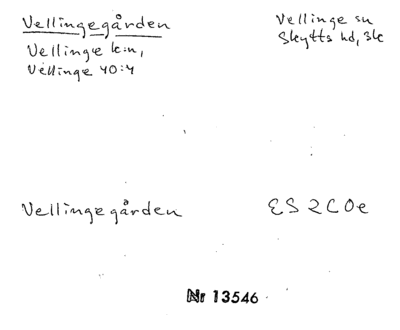 Vellingegården
Vellinge k:n,
Vellinge 40:4
Vellinge sn
Skytts hd, Sk
Vellingegården
ES 2C 0e
Nr 13546